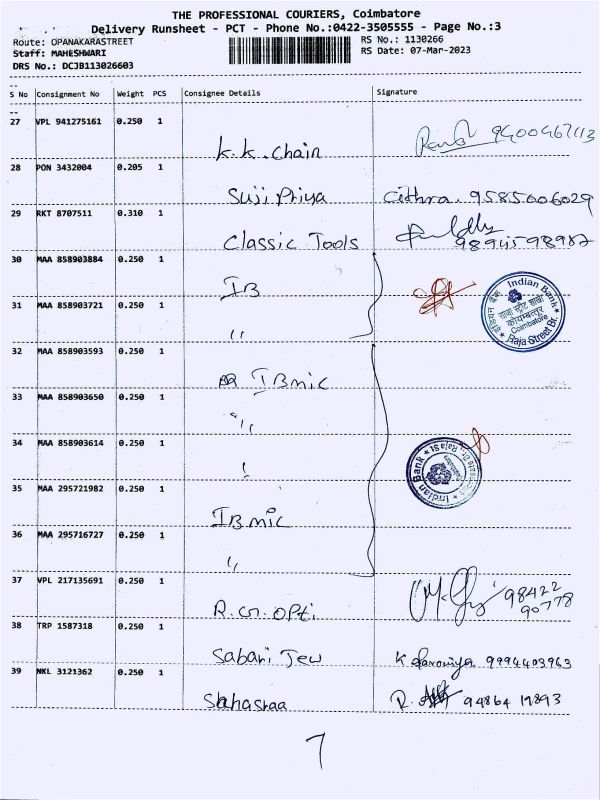 THE PROFESSIONAL COURIERS, Coimbatore
Delivery Runsheet - PCT - Phone No.:0422-3505555 - Page No.:3
Route: OPANAKARASTREET
RS No.: 1130266
Staff: MAHESHWARI
RS Date: 07-Mar-2023
DRS No.: DCJB113026603
S No Consignment No Weight PCS Consignee Details Signature
27 VPL 941275161 0.250 1
K.K. Chain
28 PON 3432004 0.205 1
Suji Priya Cithra. 9585006029
29 RKT 8707511 0.310 1
Classic Tools
30 MAA 858903884 0.250 1
IB
Indian Bank
राजा स्ट्रीट शाखा
कोयम्बत्तूर
Coimbatore
Raja Street Br.
31 MAA 858903721 0.250 1
"
32 MAA 858903593 0.250 1
IBMIC
33 MAA 858903650 0.250 1
"
34 MAA 858903614 0.250 1
"
Indian Bank
35 MAA 295721982 0.250 1
IBMIC
36 MAA 295716727 0.250 1
"
37 VPL 217135691 0.250 1
R.G. Opti 98422
90778
38 TRP 1587318 0.250 1
Sabari Jew 9994403963
39 NKL 3121362 0.250 1
Sahasraa R. 94864 19893
7